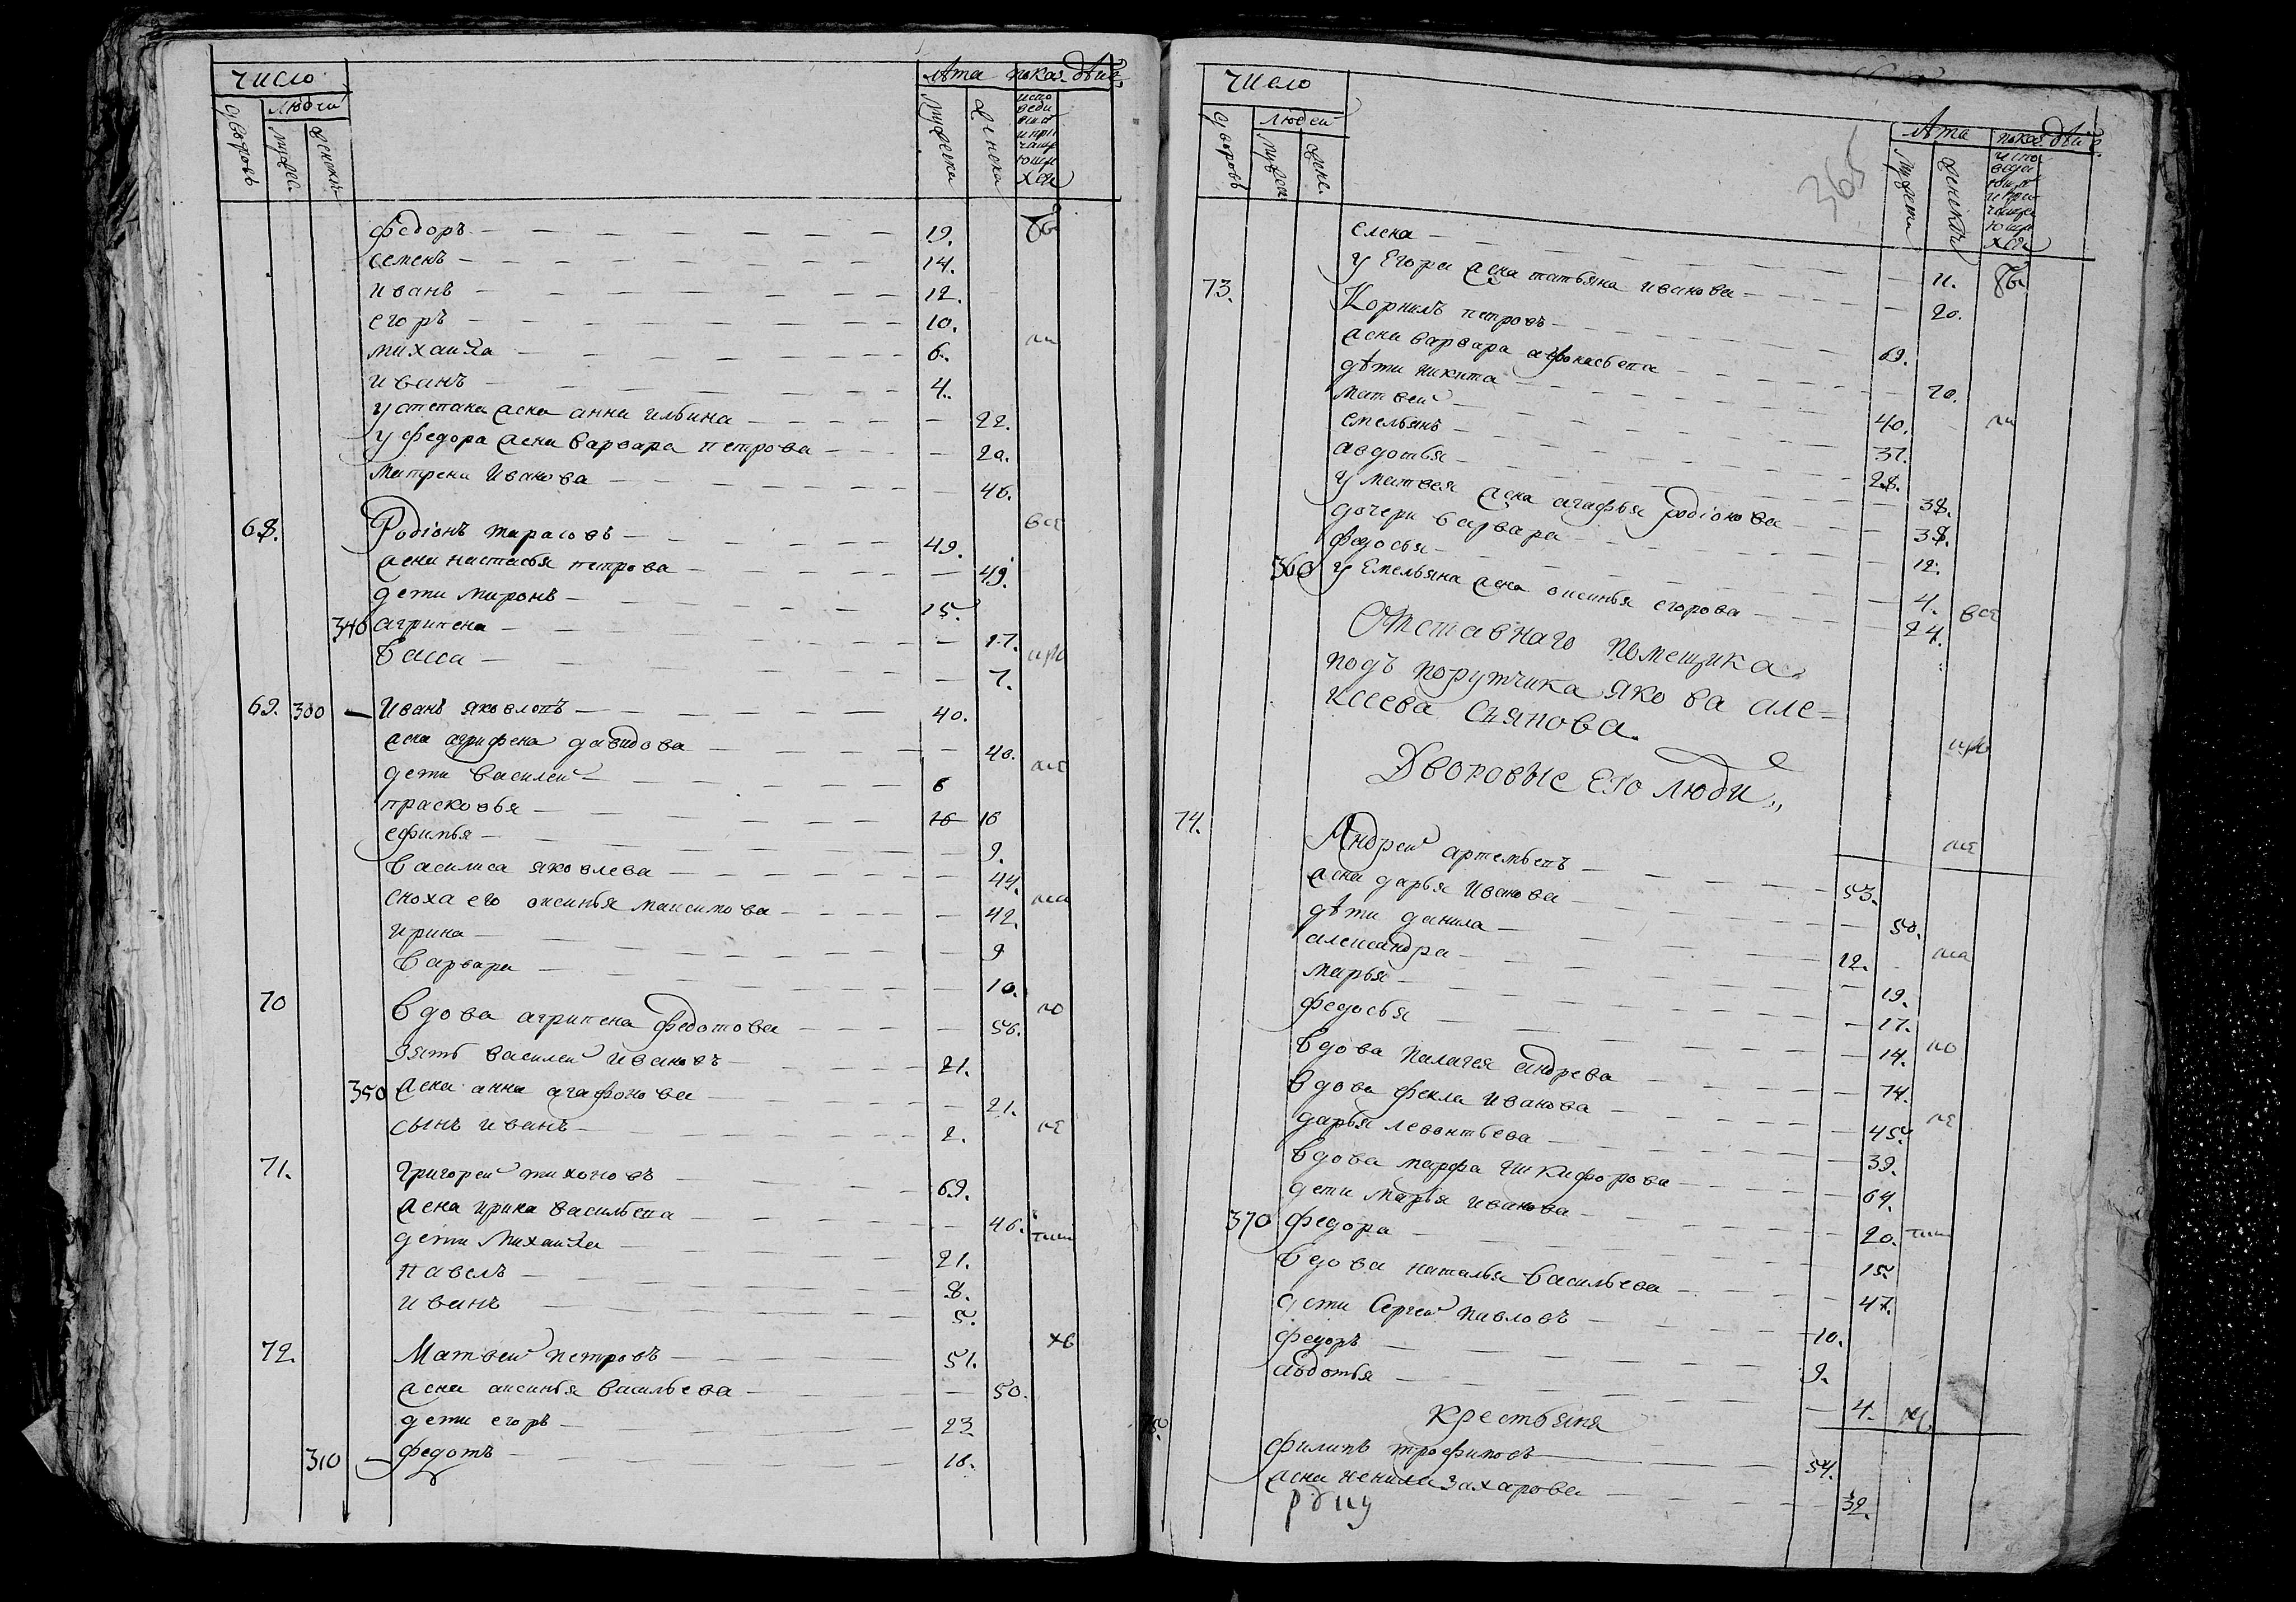 число
людей
дворовъ
мужес.
женскихъ
лѣта
показ. дѣист.
мужеска
женска
испо
веди
вших
и при
чаща
ющи
хся
федоръ 19. бы
семенъ 14.
иванъ 12.
егоръ 10.
михаила 6. ли
иванъ 4.
у степана жена анна ильина 22.
у федора жена варвара петрова 20.
матрена иванова 46.
68. Родіонъ тарасовъ 49. всѣ
жена настасья петрова 49.
дети миронъ 15.
340 агрипена 17.
васса 7. ирк
69. 300 иванъ яковлевъ 40.
жена агрифена давидова 40.
дети василеи 6
прасковья 16 16
ефимья 9.
василиса яковлева 44.
сноха его оксинья максимова 42.
ирина 9
варвара 10.
70 вдова агрипена федотова 56. ло
зять василеи ивановъ 21.
350 жена анна агафонова 21.
сынъ иванъ 2.
71. григореи тихоновъ 69.
жена ирина васильева 46.
дети михаила 21.
павелъ 8.
иванъ 5.
72. Матвеи петровъ 51. хв
жена аксинья васильева 50.
дети егоръ 23
310 федотъ 18.
число
людей
дворовъ
мужеск
женс.
365
лѣта
показ. дѣист.
мужеска
женскъ
испо
веди
вших
и при
чаща
ющи
хся
елена 11. бы
у Егора жена татьяна иванова 20.
73. Корнилъ петровъ 69.
жена варвара афонасьева 70.
дѣти никита 40. ли
матвеи 37.
емельянъ 28.
авдотья 38.
у матвея жена агафья родіонова 38.
дочери варвара 12.
федосья 4. всѣ
360 у Емельяна жена оксинья егорова 24.
Отставнаго помещика
подъ порутчика якова але=
ксеева Съянова.
Дворовые его люди
74. Андреи артемьевъ 53.
жена дарья иванова 50.
дѣти данила 12.
александра 19.
марья 17.
федосья 14.
вдова палагея андрева 74.
вдова фекла иванова 45.
дарья левонтьева 39.
вдова марфа никифорова 64.
дети марья иванова 20.
370 федора 15
вдова наталья васильева 47.
дети Сергеи павловъ 10.
федоръ 9.
авдотья 4.
крестьяня
75. филипъ трофимовъ 54.
жена ненила захарова 39.
рдиу